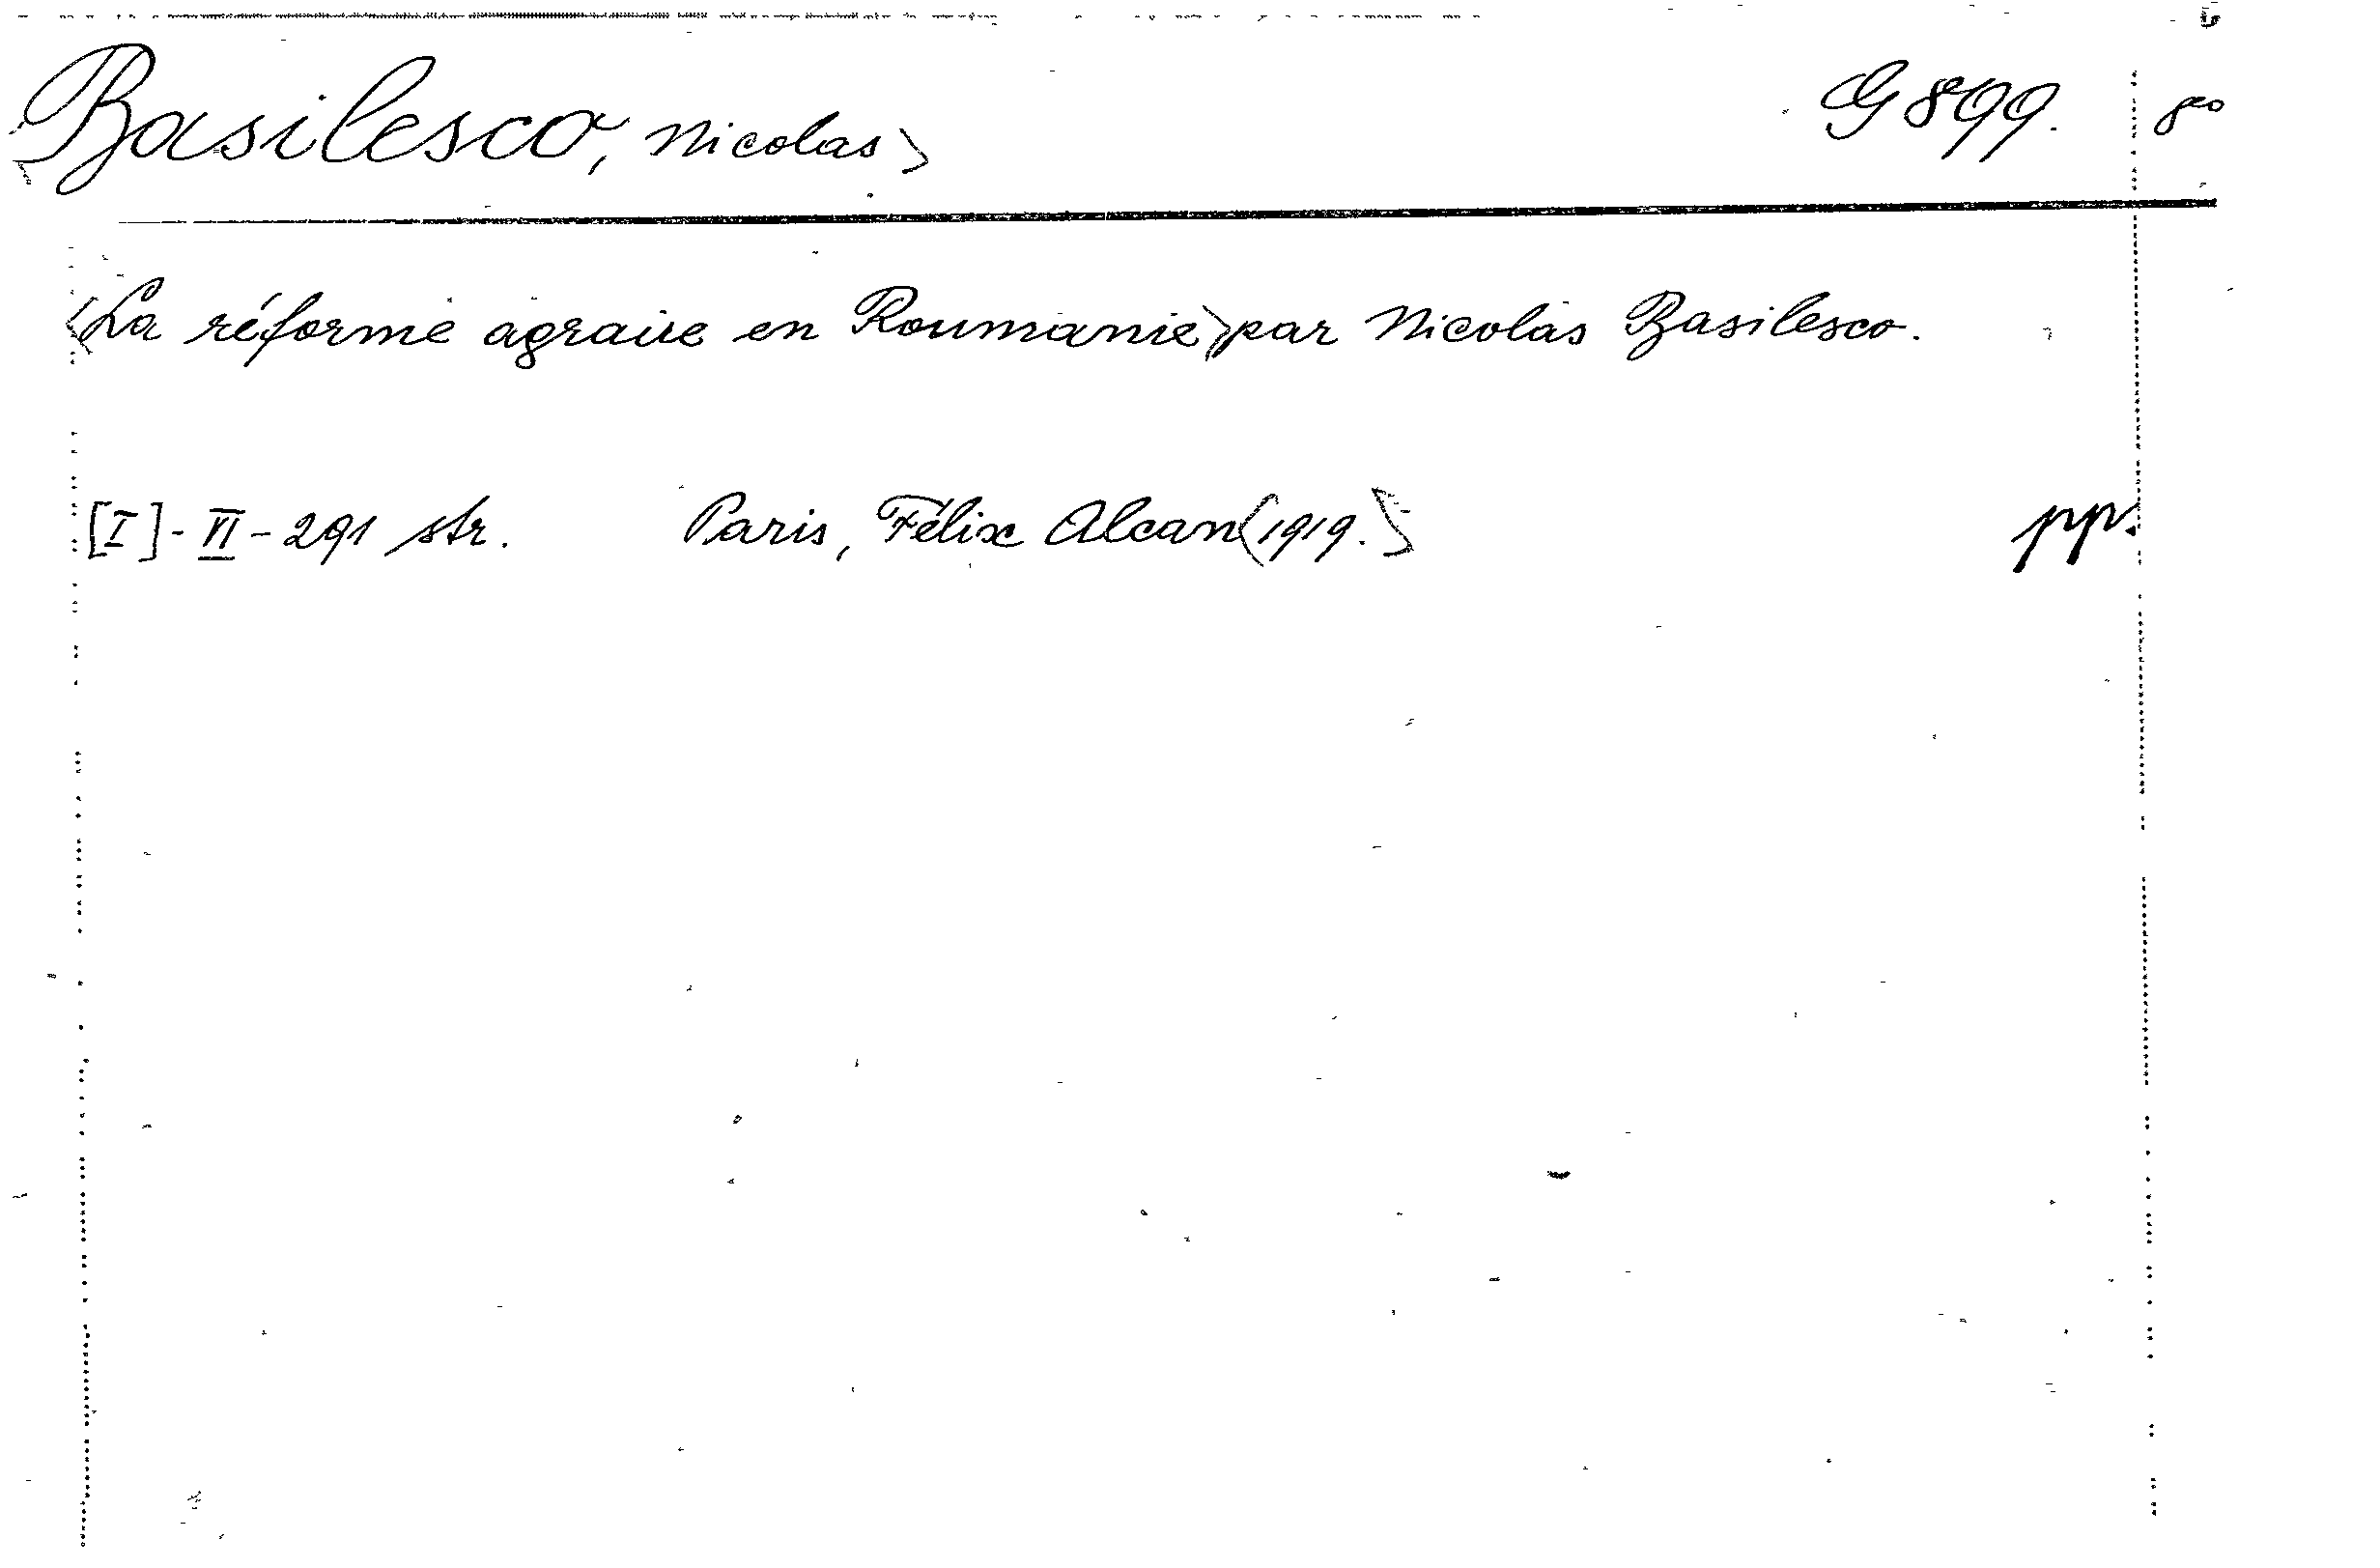 <Basilesco, Nicolas> G 899. 8º
<La réforme agraire en Roumanie> par Nicolas Basilesco.
[I]-VI-291 str. Paris, Félix Alcan <1919.> pp.